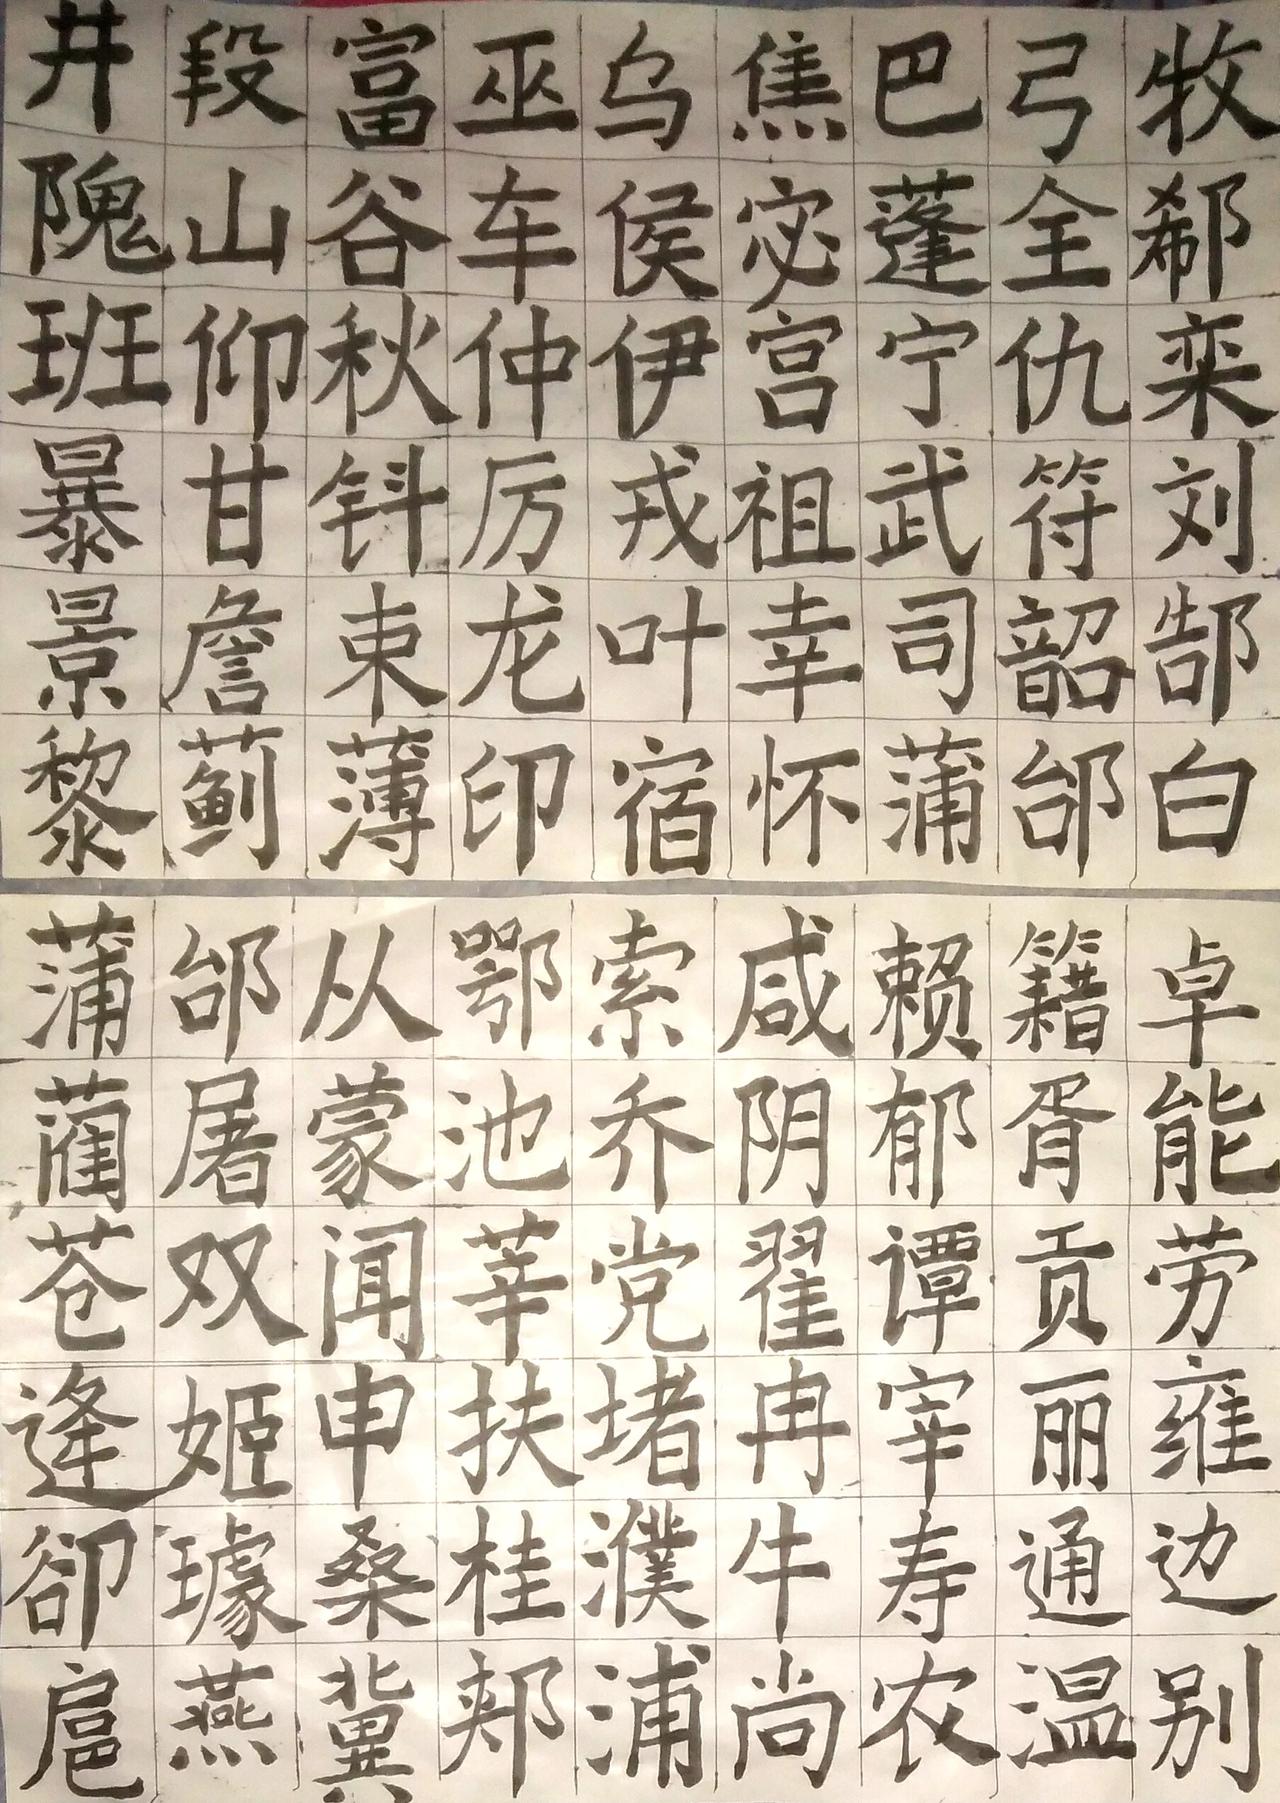 井段富巫乌焦巴弓牧
隗山谷车侯宓蓬全郗
班仰秋仲伊宫宁仇栾
暴甘钭厉戎祖武符刘
景詹束龙叶幸司韶郜
黎蓟薄印宿怀蒲邰白
蒲邰从鄂索咸赖籍卓
蔺屠蒙池乔阴郁胥能
苍双闻莘党翟谭贡劳
逢姬申扶堵冉宰丽雍
卻璩桑桂濮牛寿通边
扈燕冀郏浦尚农温别